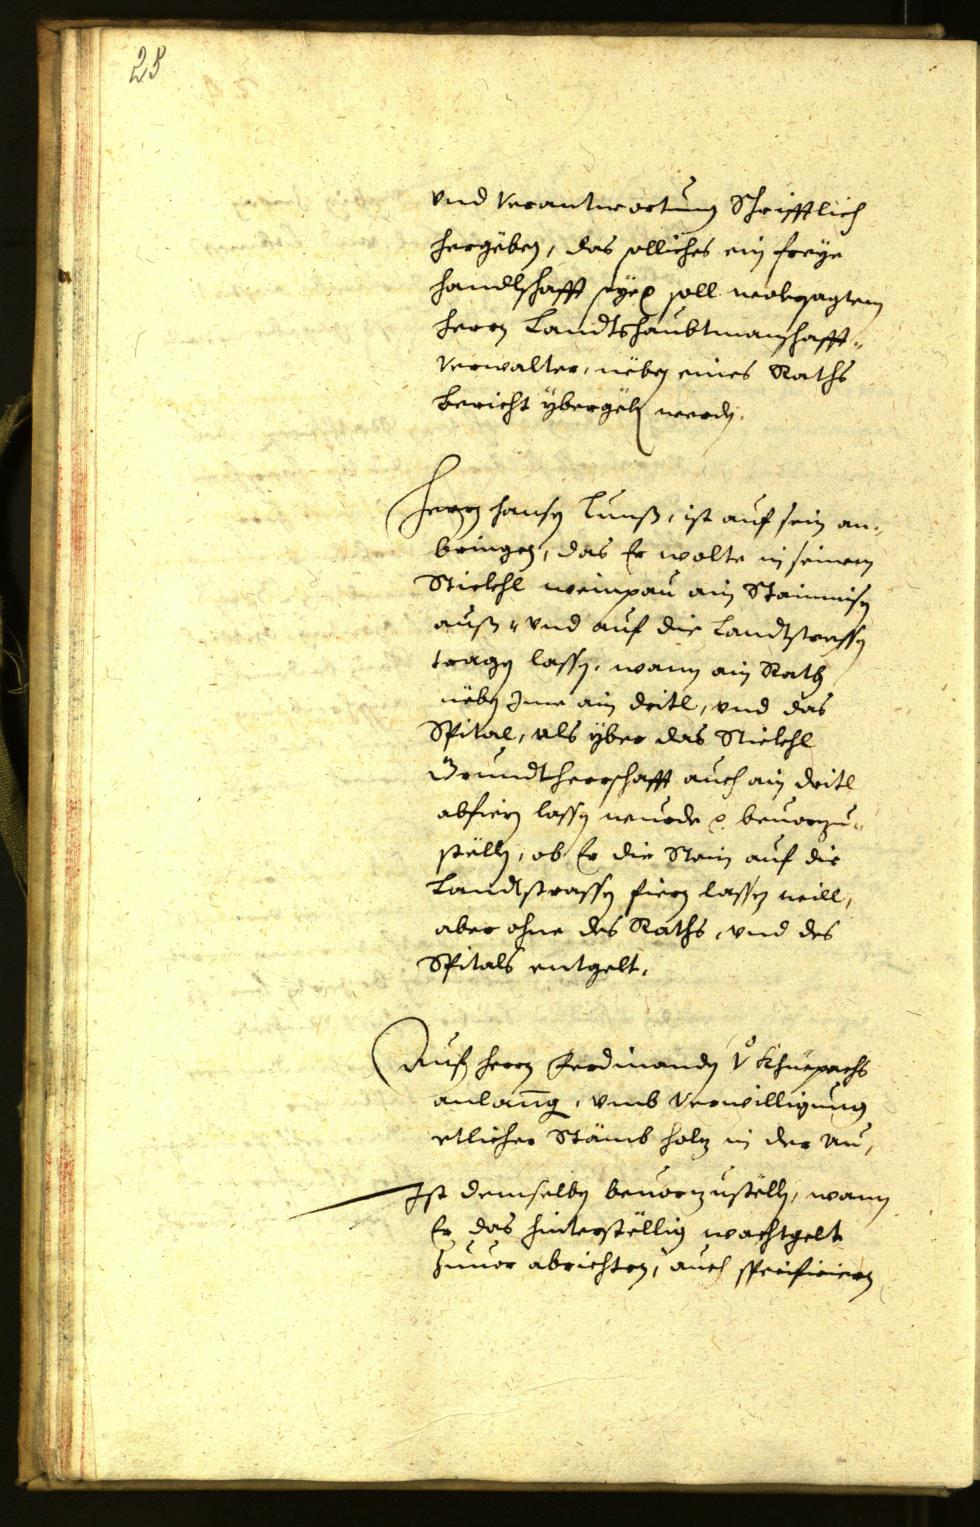 28
vnd Verantwortung Schrifftlich
hergëben, das solliches ein freÿe
handlschafft seÿe soll wolbesagtem
herrn Landtshaubtmanschafft=
Verwalter, nëben eines Raths
bericht ÿbergëben werden.
Herrn hansen Lunß, ist auf sein an=
bringen, das Er wolte in seinem
Stickhl weinpau ain Stainmisn
auß vnd auf die Landtstrassn
tragn lassn, wann ain Rath
nëben Ime ain dritl, vnd das
Spital, als ÿber das Stickhl
Grundtherrschafft auch ain dritl
abfiern lassn wurde beuorzu=
stëlln, ob Er die Stain auf die
Landtstrassn fiern lassn will,
aber ohne des Raths, vnd des
Spitals entgelt.
Auf herrn Ferdinanden V Khuepachs
anlanng, vmb Verwilligung
etlicher Stämb holz in der Au,
Ist demselben beuorzustëlln, wann
Er das hinterstëllig wachtgelt
zuuor abrichten, auch specificiern